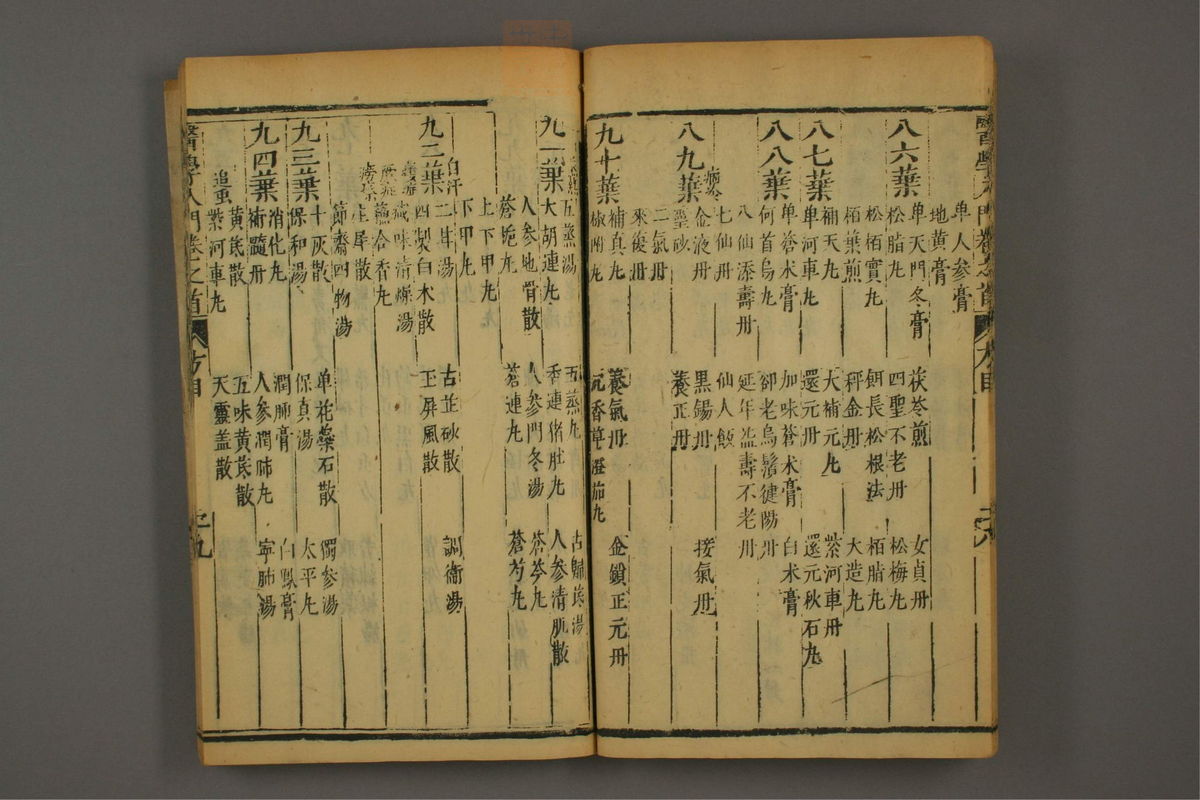 醫學入門卷之首 方目 二十八
单人参膏
地黄膏
八六葉 单天門冬膏 茯苓煎 女貞丹
松脂丸 四聖不老丹 松梅丸
松栢實丸 餌長松根法 栢脂丸
栢葉煎 秤金丹 大造丸
八七葉 補天丸 大補元丸 紫河車丹
单河車丸 還元丹 還元秋石丸
八八葉 单蒼术膏 加味蒼术膏 白术膏
何首烏丸 卻老烏鬚健陽丹
八仙添壽丹 延年益壽不老丹
七仙丹 仙人飯
八九葉 痼冷 金液丹 黒錫丹 接氣丹
靈砂 養正丹
二氣丹
來復丹
九十葉 補真丸 養氣丹 金鎖正元丹
椒附丸 沉香蓽澄茄丸
五蒸湯 五蒸丸 古歸茋湯
九一葉 大胡連丸 香連猪肚丸 人參清肌散
人參地骨散 人參門冬湯 苓芩丸
蒼梔丸 蒼連丸 蒼芍丸
上下甲丸
下甲丸
自汗 二甘湯 古芷砂散 調衛湯
九二葉 四製白术散 玉屏風散
痿症 滋味清燥湯
厥症 蘓合香丸
癆瘵 生犀散
節齋四物湯
九三葉 十灰散 单花蘂石散 獨參湯
保和湯 保真湯 太平丸
消化丸 潤肺膏 白鳳膏
九四葉 補髓丹 人參潤肺丸 寧肺湯
黄茋散 五味黄茋散
追虫 紫河車丸 天靈盖散
醫學入門卷之首 方目 二十九